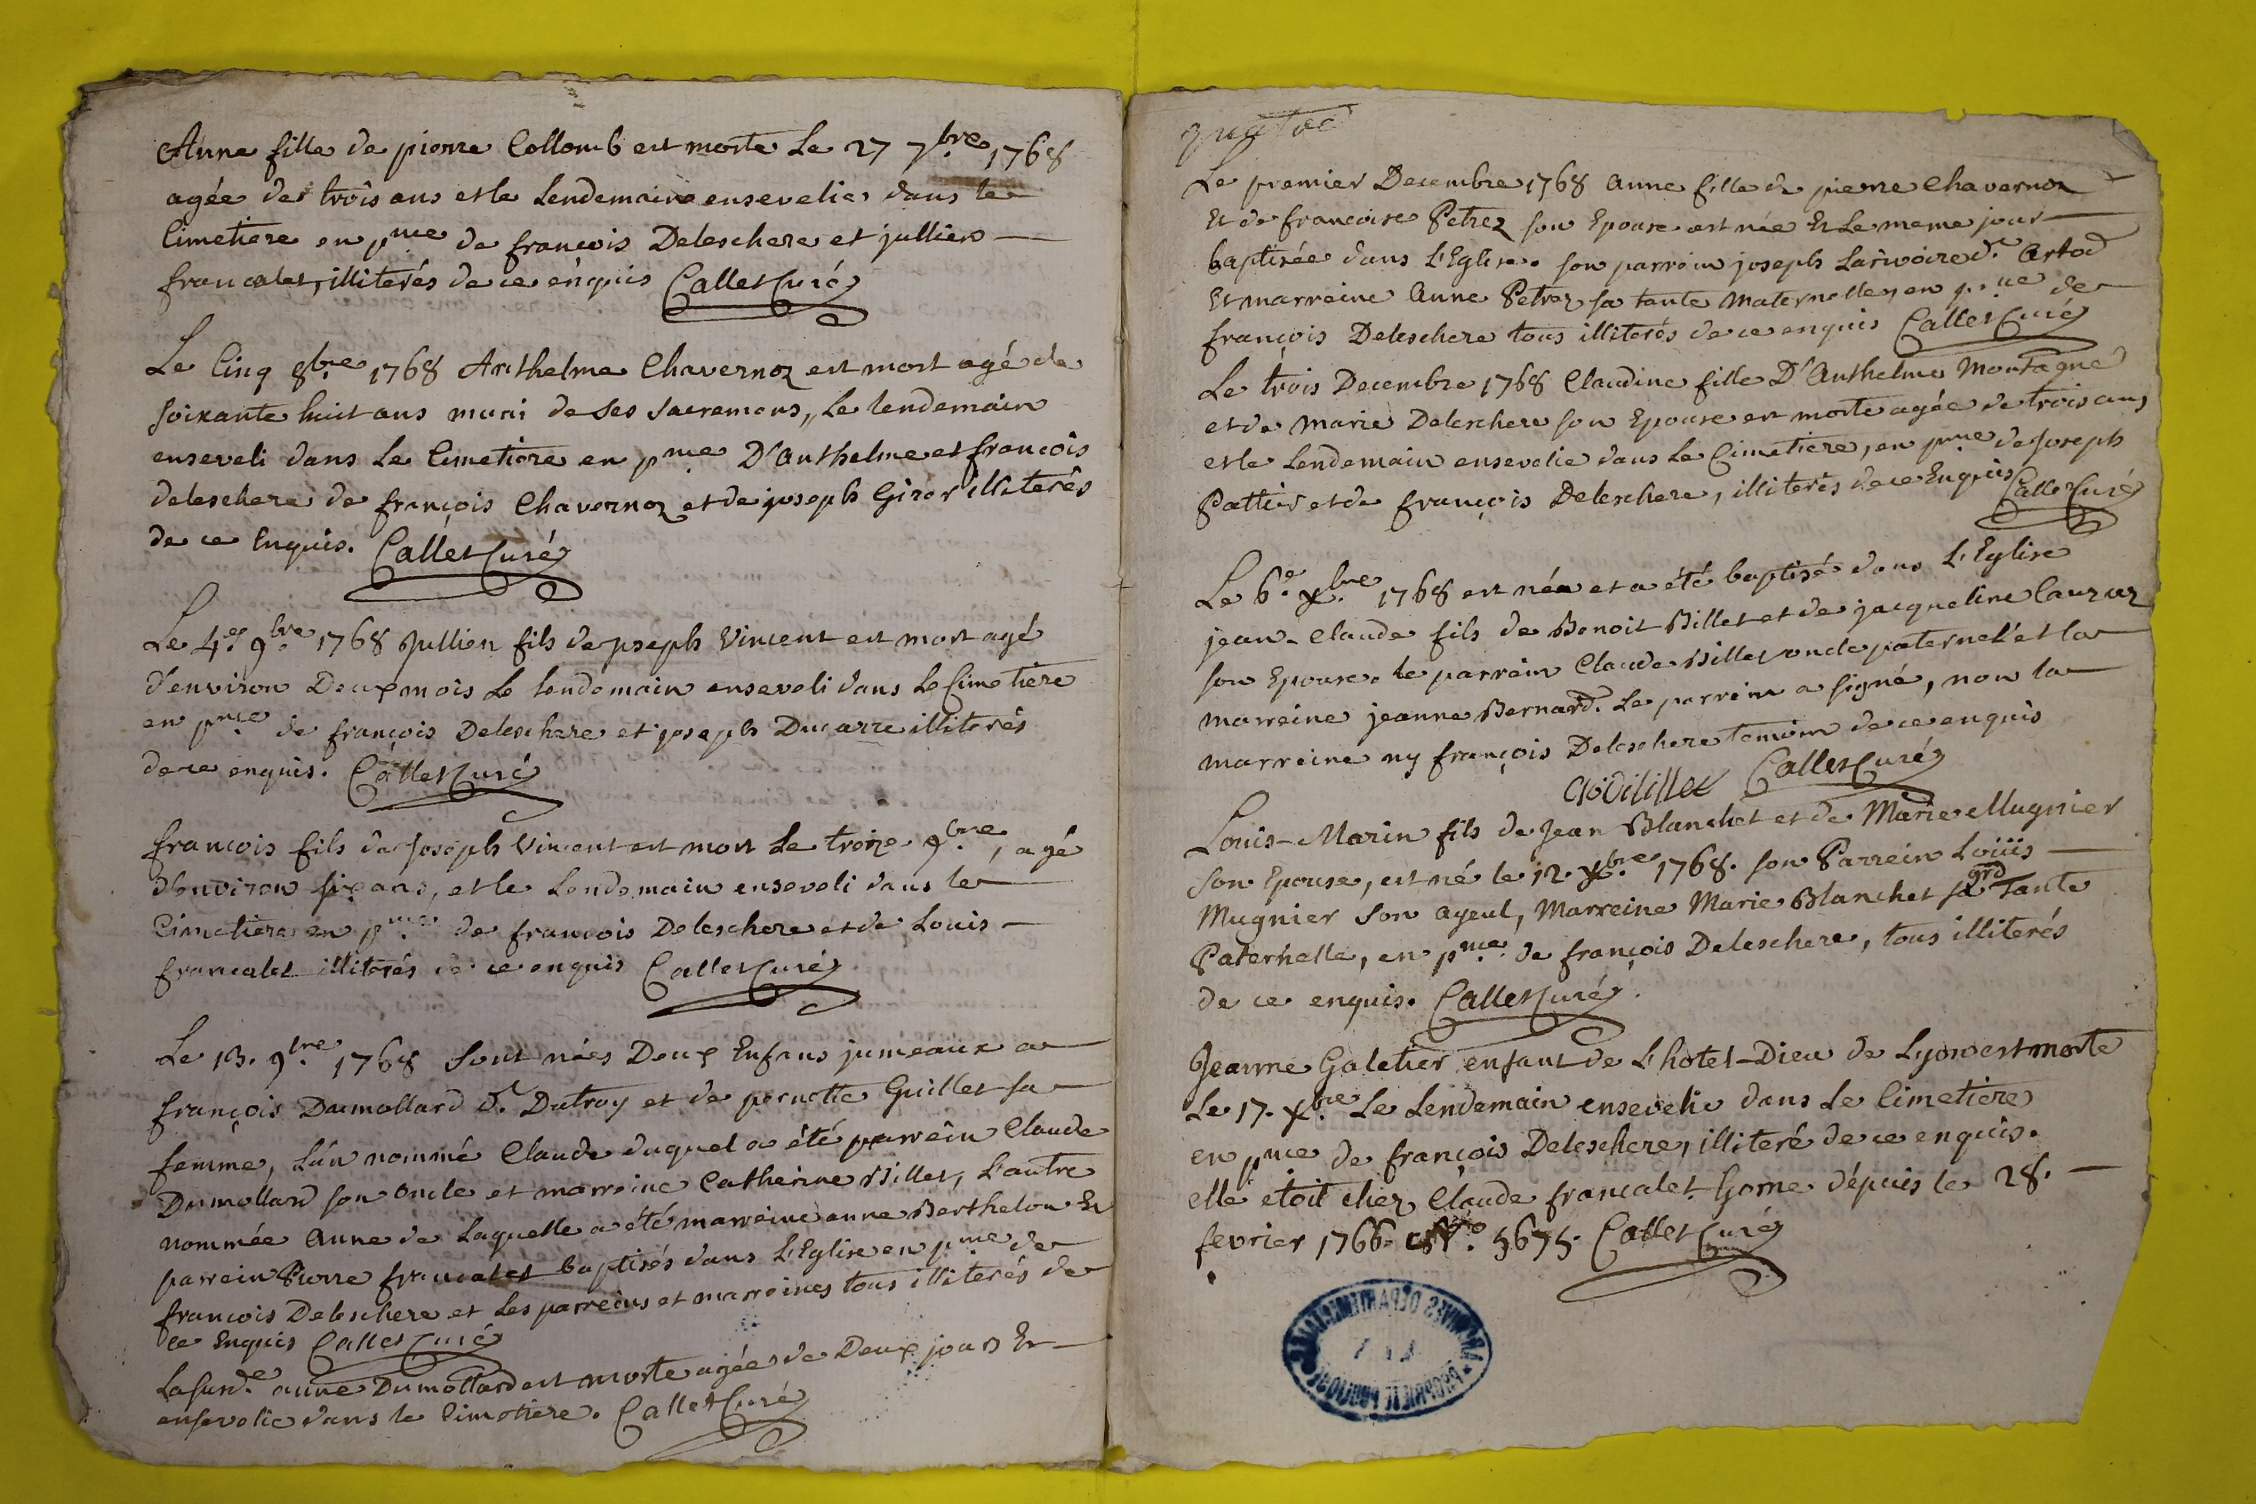 Anne fille de pierre Collomb est morte Le 27 7bre 1768
agée de trois ans et le Lendemain ensevelie dans le
Cimetiere en pnce de françois Deleschere et jullien
francalet, illiterés de ce enquis Callet Curé
Le Cinq 8bre 1768 Anthelme Chavernoz est mort agé de
soixante huit ans muni de Ses Sacremens, Le lendemain
enseveli dans Le Cimetiere en pnce D'Anthelme et françois
deleschere de françois Chavernoz et de joseph Giror illiterés
de ce Enquis. Callet Curé
Le 4e 9bre 1768 Jullien fils de joseph Vincent est mort agé
d'environ Deux mois Le lendemain enseveli dans Le Cimetiere
en pnce de françois Deleschere et joseph Ducarre illiterés
de ce enquis. Callet Curé
françois fils de Joseph Vincent est mort Le treize 9bre, agé
d'environ six ans, et le Lendemain enseveli dans le
Cimetiere en pnce de françois Deleschere et de Louis
francalet illiterés de ce enquis Callet Curé
Le 13. 9bre 1768 Sont nées Deux Enfans jumeaux a
françois Dumollard dt Dutroy et de pernette Guillet sa
femme, L'un nommé Claude duquel a été parrein Claude
Dumollard son Oncle et marreine Catherine Billet, L'autre
nommée Anne de Laquelle a été marreine anne Berthelon Et
parrein Pierre francalet baptisés dans L'Eglise en pnce de
françois Deleschere et Les parreins et marreines tous illiterés de
ce Enquis Callet Curé
La susde anne Dumollard est morte agée de Deux jours Et
ensevelie dans le Cimetiere. Callet Curé
Le premier Decembre 1768 Anne fille de pierre Chavernoz
Et de francoise Petrez son Epouse est née Et Le meme jour
baptisée dans L'Eglise. son parrein joseph Larivoire dt Artod
Et marreine Anne Petrez sa tante Maternelle, en pnce de
françois Deleschere tous illiterés de ce enquis Callet Curé
Le trois Decembre 1768 Claudine fille D'Anthelme Montagne
et de Marie Deleschere son Epouse est morte agée de trois ans
et le Lendemain ensevelie dans Le Cimetiere, en pnce de Joseph
Pattier et de françois Deleschere, illiterés de ce Enquis Callet Curé
Le 6e Xbre 1768 est née et a été baptisé dans L'Eglise
jean-Claude fils de Benoit Billet et de jacqueline
son Epouse. le parrein Claude Billet oncle paternel et la
marreine jeanne Bernard. Le parrein a signé, non la
marreine ny françois Deleschere temoin de ce enquis
Callet Curé
Louis-Marin fils de Jean Blanchet et de Marie Mugnier
Son Epouse, est né le 12. Xbre 1768. son Parrein Louis
Mugnier Son ayeul, Marreine Marie Blanchet sa grd Tante
Paternelle, en pnce de françois Deleschere, tous illiterés
de ce enquis. Callet Curé.
Jeanne Galetier enfant de L'hotel-Dieu de Lyon est morte
Le 17. Xbre Le Lendemain ensevelie dans Le Cimetiere
en pnce de françois Deleschere, illiteré de ce enquis.
elle etoit chez Claude francalet Gorne dépuis le 28.
fevrier 1766. 5675. Callet Curé